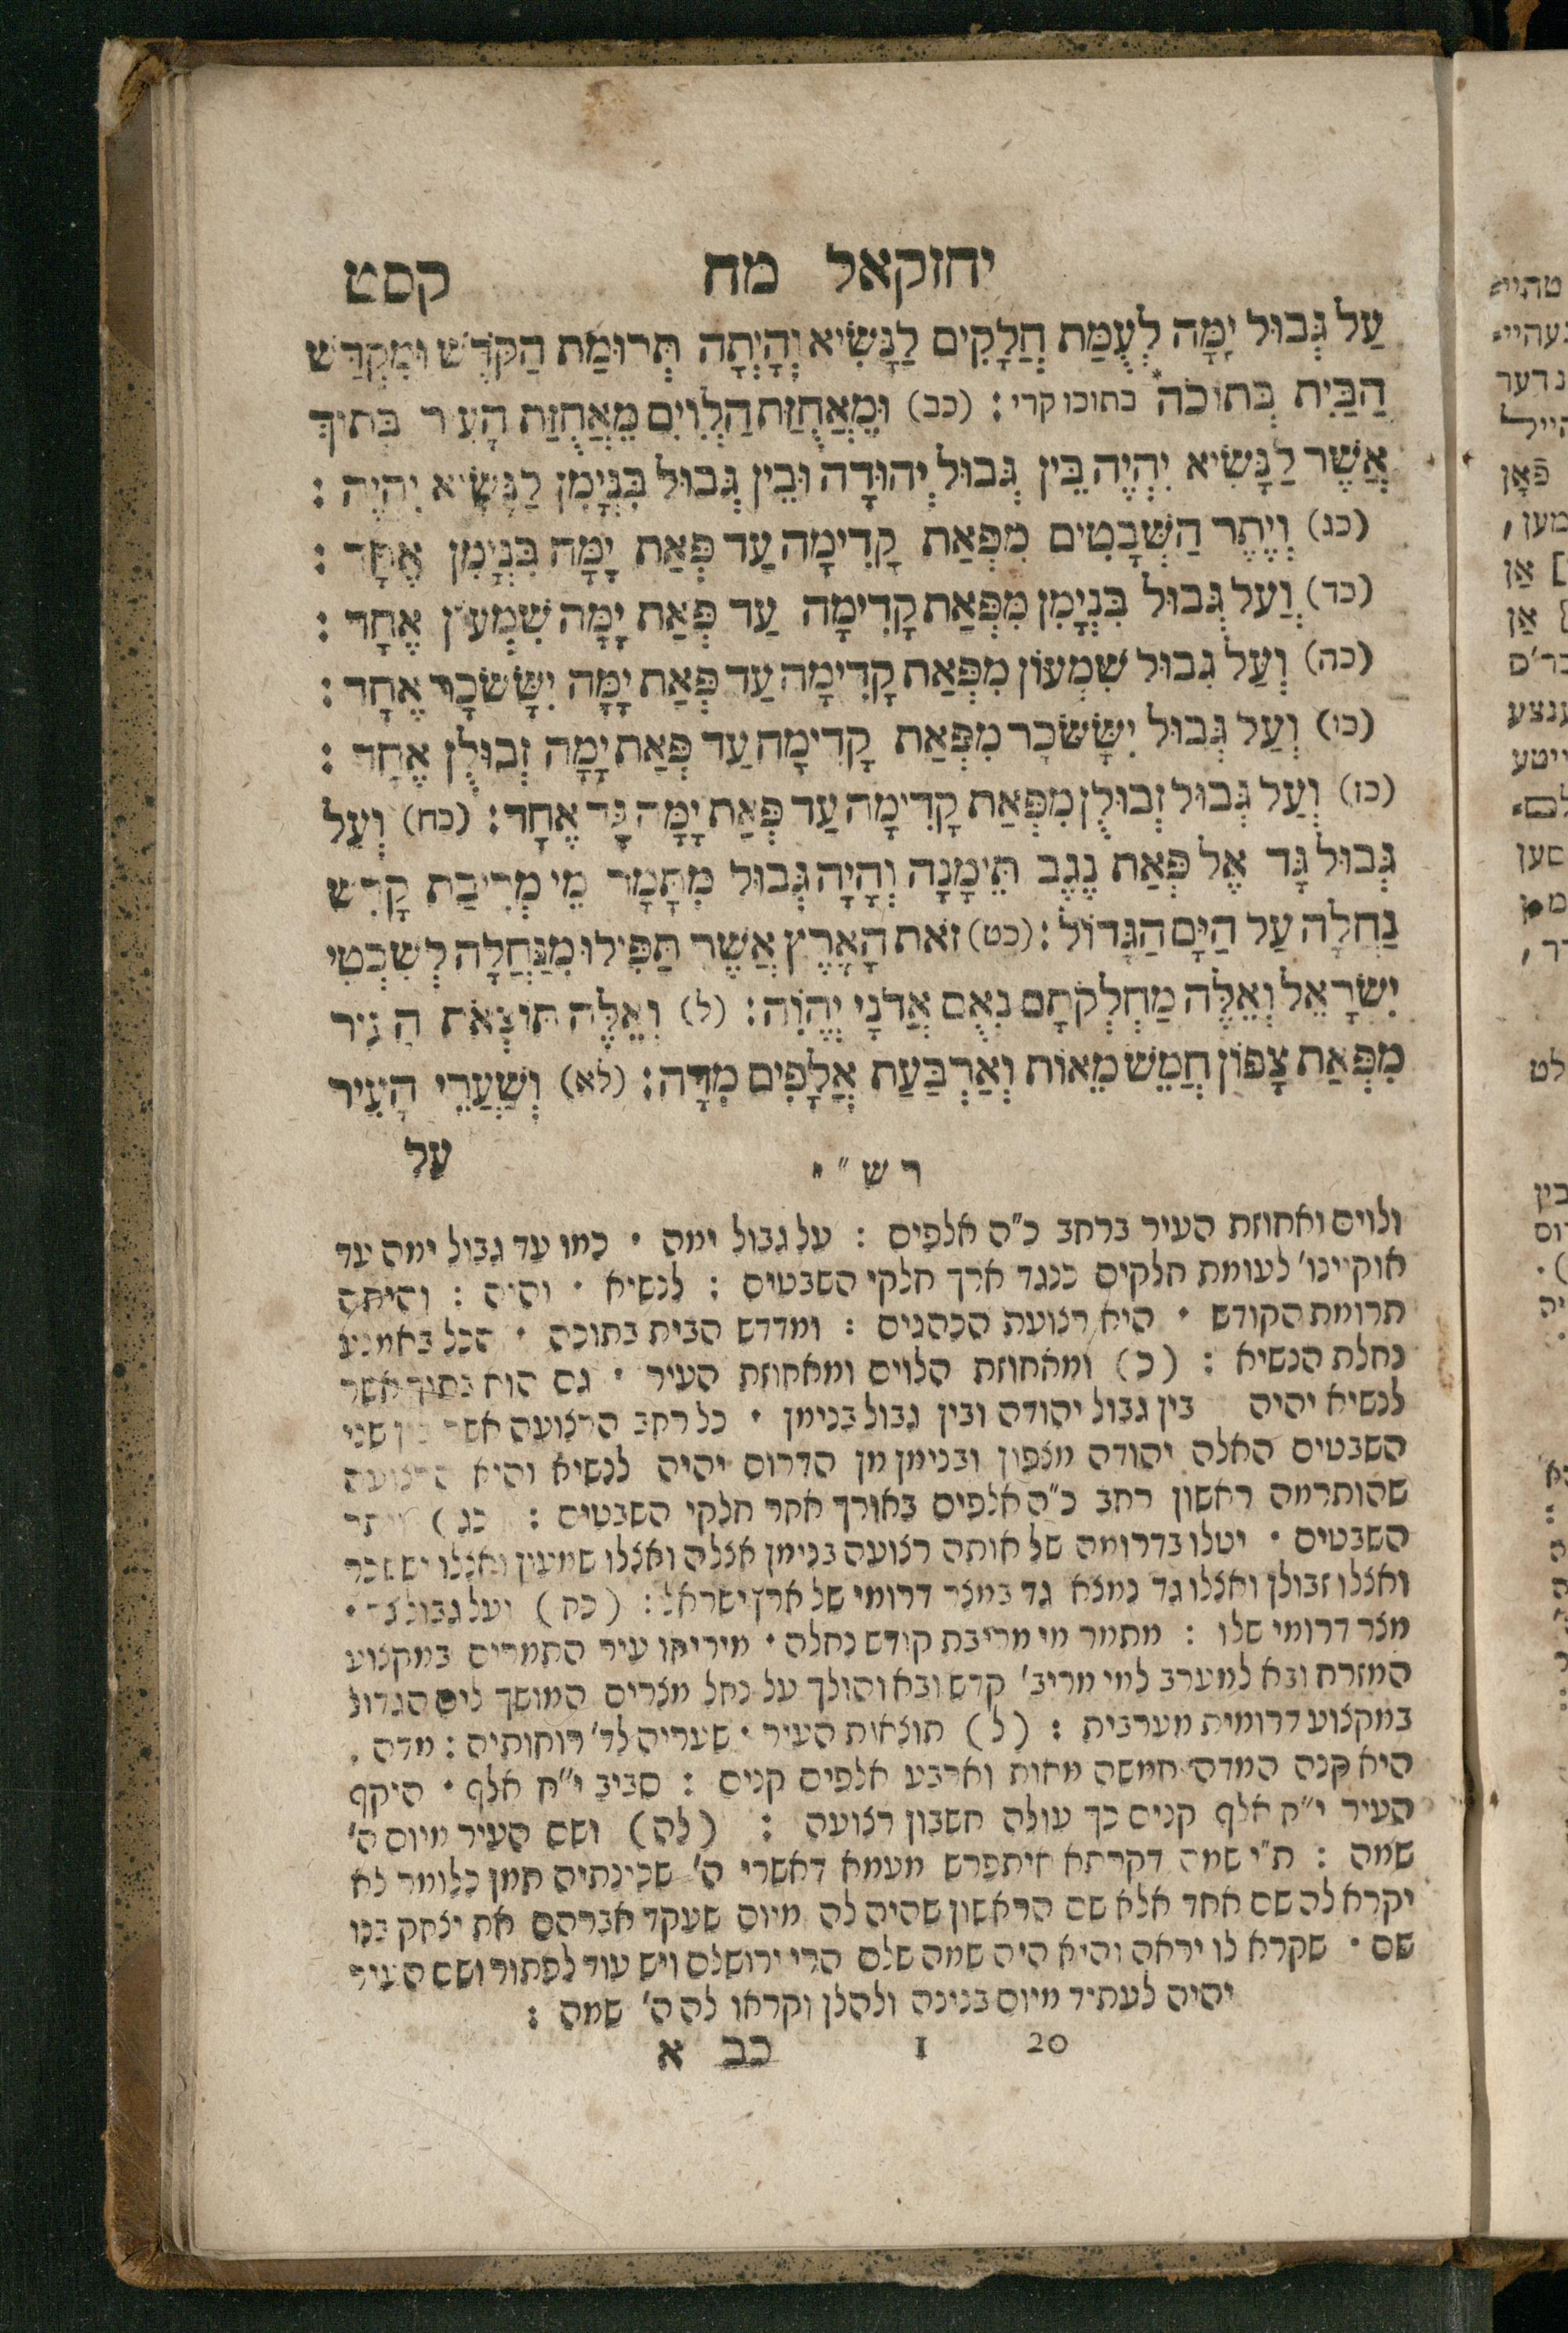 יחזקאל מח קסט
עַל גְּבוּל יָמָּה לְעֻמַּת חֲלָקִים לַנָּשִׂיא וְהָיְתָה תְּרוּמַת הַקֹּדֶשׁ וּמִקְדַּשׁ
הַבַּיִת בְּתוֹכֹה* בתוכו קרי : (כב) וּמֵאֲחֻזַּת הַלְוִיִּם מֵאֲחֻזַּת הָעִיר בְּתוֹךְ
אֲשֶׁר לַנָּשִׂיא יִהְיֶה בֵּין גְּבוּל יְהוּדָה וּבֵין גְּבוּל בִּנְיָמִן לַנָּשִׂיא יִהְיֶה :
(כג) וְיֶתֶר הַשְּׁבָטִים מִפְּאַת קָדִימָה עַד פְּאַת יָמָּה בִּנְיָמִן אֶחָד :
(כד) וְעַל גְּבוּל בִּנְיָמִן מִפְּאַת קָדִימָה עַד פְּאַת יָמָּה שִׁמְעוֹן אֶחָד :
(כה) וְעַל גְּבוּל שִׁמְעוֹן מִפְּאַת קָדִימָה עַד פְּאַת יָמָּה יִשָּׂשׂכָר אֶחָד :
(כו) וְעַל גְּבוּל יִשָּׂשׂכָר מִפְּאַת קָדִימָה עַד פְּאַת יָמָּה זְבוּלֻן אֶחָד :
(כז) וְעַל גְּבוּל זְבוּלֻן מִפְּאַת קָדִימָה עַד פְּאַת יָמָּה גָּד אֶחָד : (כח) וְעַל
גְּבוּל גָּד אֶל פְּאַת נֶגֶב תֵּימָנָה וְהָיָה גְּבוּל מִתָּמָר מֵי מְרִיבַת קָדֵשׁ
נַחְלָה עַל הַיָּם הַגָּדוֹל : (כט) זֹאת הָאָרֶץ אֲשֶׁר תַּפִּילוּ מִנַּחֲלָה לְשִׁבְטֵי
יִשְׂרָאֵל וְאֵלֶּה מַחְלְקֹתָם נְאֻם אֲדֹנָי יְהֹוִה : (ל) וְאֵלֶּה תּוֹצְאֹת הָעִיר
מִפְּאַת צָפוֹן חֲמֵשׁ מֵאוֹת וְאַרְבַּעַת אֲלָפִים מִדָּה : (לא) וְשַׁעֲרֵי הָעִיר
עַל
רש״י
ולוים ואחוזת העיר ברחב כ״ה אלפים : על גבול ימה • כמו עד גבול ימה עד
אוקיינו' לעומת חלקים כנגד ארך חלקי השבטים : לנשיא • יהיה : והיתה
תרומת הקודש • היא רצועת הכהנים : ומקדש הבית בתוכה • הכל באמצע
נחלת הנשיא : (כ) ומאחוזת הלוים ומאחוזת העיר • גם הוא בתוך אשר
לנשיא יהיה בין גבול יהודה ובין גבול בנימן • כל רחב הרצועה אשר בין שני
השבטים האלה יהודה מצפון ובנימן מן הדרום יהיה לנשיא והיא הרצועה
שהותרמה ראשון רחב כ״ה אלפים באורך אחד חלקי השבטים : כג) ויתר
השבטים • יטלו בדרומה של אותה רצועה בנימן אצלה ואצלו שמעון ואצלו יששכר
ואצלו זבולן ואצלו גד נמצא גד במצר דרומי של ארץ ישראל : (כח) ועל גבול גד •
מצר דרומי שלו : מתמר מי מריבת קודש נחלה • מיריחו עיר התמרים במקצוע
המזרח ובא למערב למי מריב' קדש ובא והולך על נחל מצרים המושך לים הגדול
במקצוע דרומית מערבית : (ל) תוצאות העיר • שעריה לד' רוחותיה : מדה .
היא קנה המדה חמשה מאות וארבע אלפים קנים : סביב י״ח אלף • היקף
העיר י״ח אלף קנים כך עולה חשבון רצועה : (לה) ושם העיר מיום ה'
שמה : ת״י שמה דקרתא איתפרש מעמא דאשרי ה' שכינתיה תמן כלומר לא
יקרא לה שם אחד אלא שם הראשון שהיה לה מיום שעקד אברהם את יצחק בנו
שם • שקרא לו יראה והיא היה שמה שלם הרי ירושלם ויש עוד לפתור ושם העיר
יהיה לעתיד מיום בנינה ולהלן וקראו לה ה' שמה :
20 I כב א